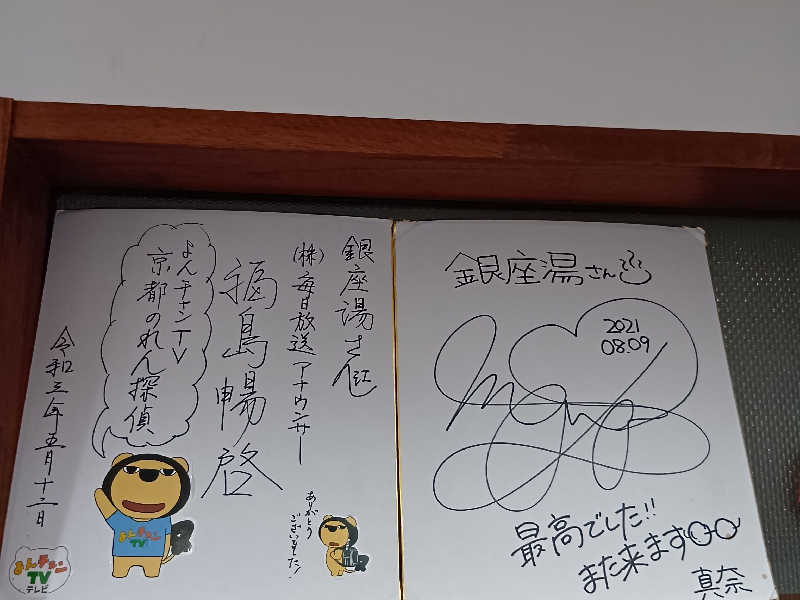 銀座湯さん江
(株)毎日放送アナウンサー
福島暢啓
よんチャンTV
京都のれん探偵
令和三年五月十二日
ありがとう
ございました!
よんチャン
TV
よんチャン
TV
テレビ
銀座湯さん
2021
08.09
最高でした!!
また来ます
真奈